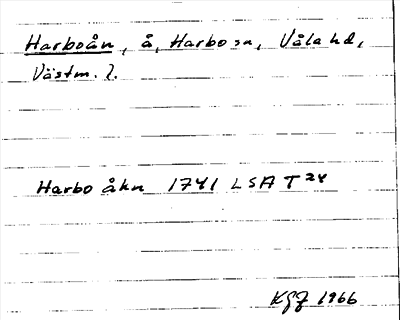 Harboån, å, Harbo sn, Våla hd,
Västm. l.
Harbo åhn 1741 LSA T 24
KGJ 1966